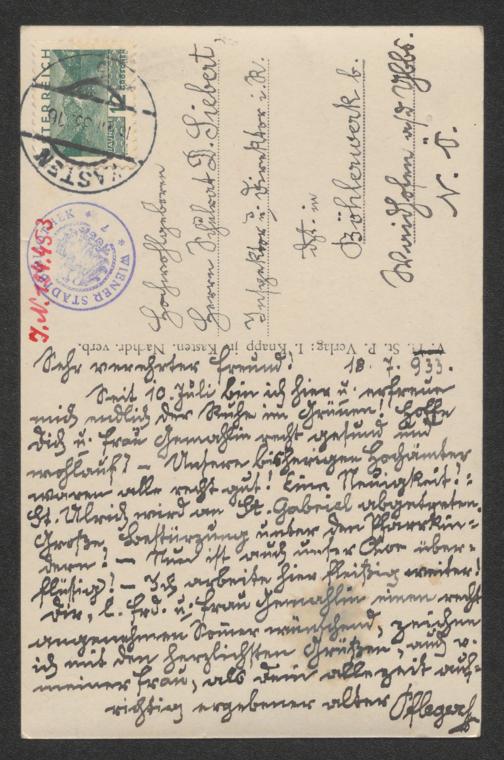 ÖSTERREICH
12 GROSCHEN
KASTEN
WIENER STADTBIBLIOTHEK
7
J.N. 174.453
Hochwohlgeboren
Herrn Schulrat D. Siebert,
Inspektor u. Direktor i. R.
dzt. in
Böhlerwerk b.
Waidhofen a/d Ybbs.
N. Ö.
V. P. St. P. Verlag: I. Knapp in Kasten. Nachdr. verb.
Sehr verehrter Freund! 18. 7. 933.
Seit 10. Juli bin ich hier u. erfreue
mich endlich der Ruhe im Grünen! Hoffe
Dich u. Frau Gemahlin recht gesund und
wohlauf! – Unsere bisherigen Hochämter
waren alle recht gut! Eine Neuigkeit!:
St. Ulrich wird an St. Gabriel abgetreten.
Große Bestürzung unter den Pfarrkin-
dern! – Nun ist auch unser Chor über-
flüssig! – Ich arbeite hier fleißig weiter!
Dir, l. Frd. u. Frau Gemahlin einen recht
angenehmen Sommer wünschend, zeichne
ich mit den herzlichsten Grüßen, auch v.
meiner Frau, als Dein allezeit auf-
richtig ergebener alter Pfleger